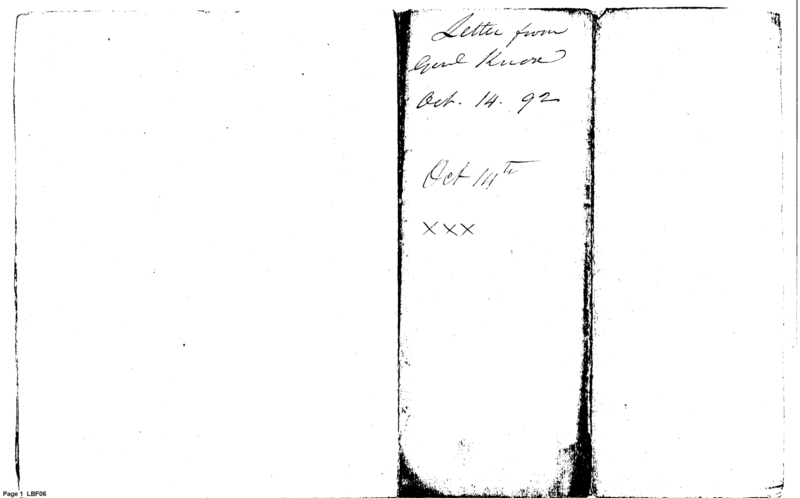 Letter from
Genl Knox
Oct. 14. 92
Oct 14th
xxx
Page 1 LBF06